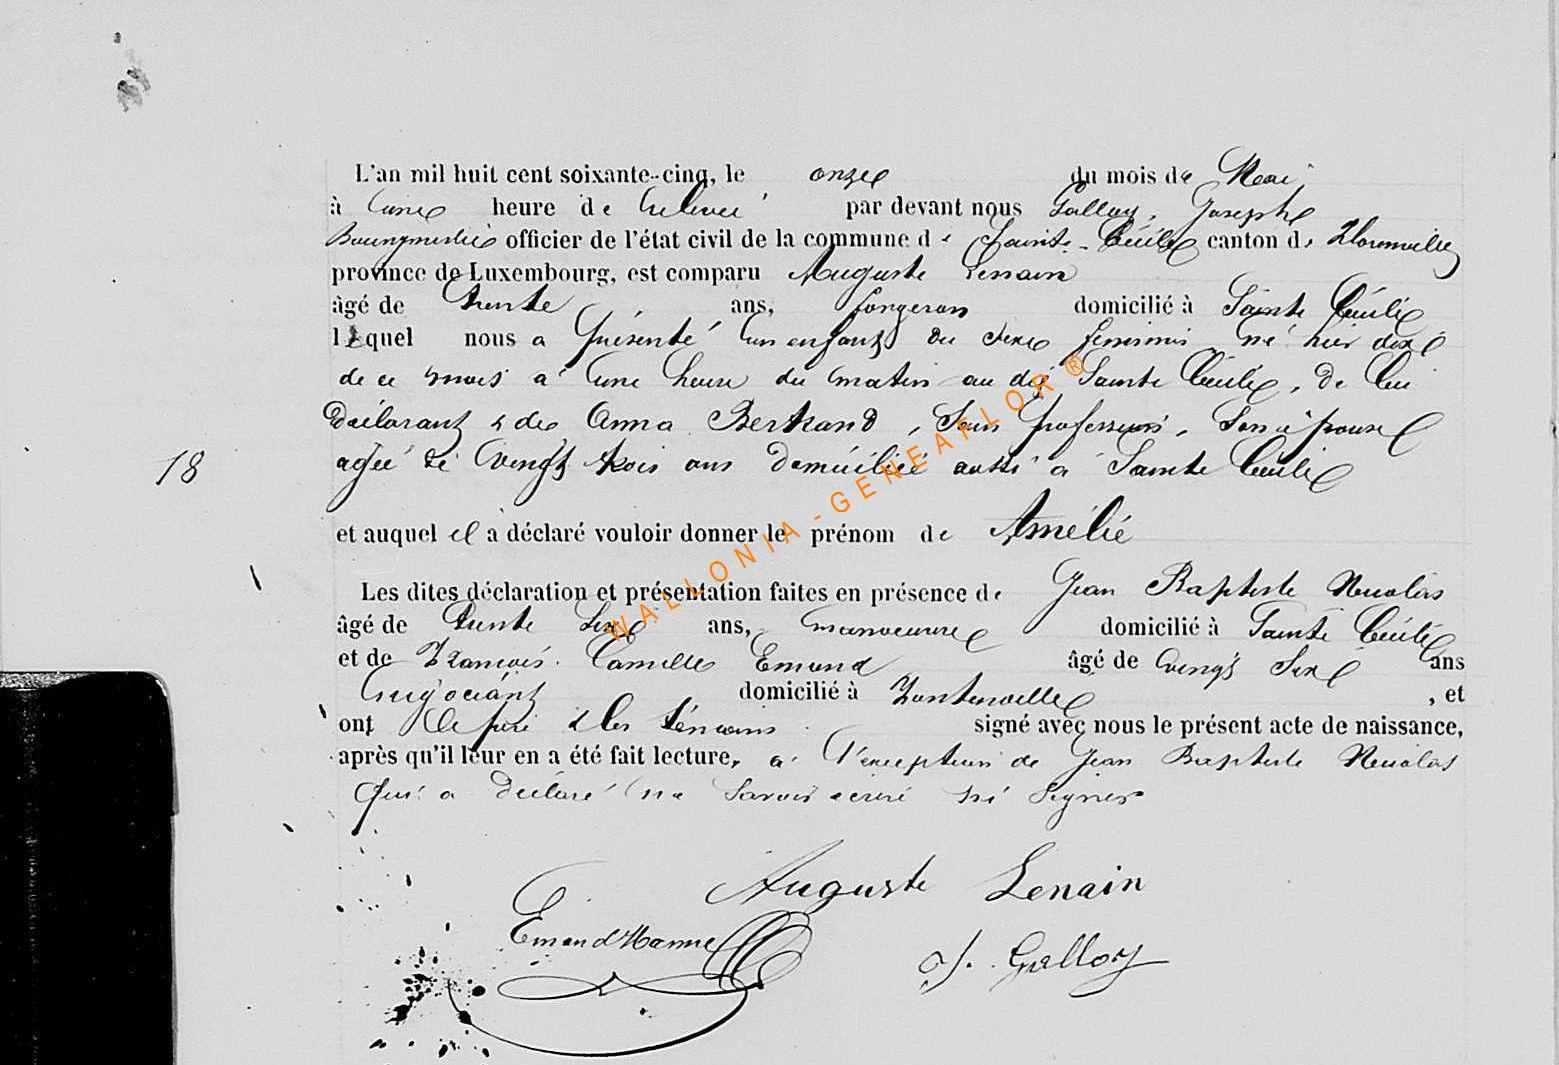 L'an mil huit cent soixante-cinq, le onze du mois de Mai
à une heure de relevée par devant nous Galloy, Joseph
Bourgmestre officier de l'état civil de la commune de Sainte-Cécile canton de Florenville
province de Luxembourg, est comparu Auguste Lenain
âgé de trente ans, forgeron domicilié à Sainte Cécile
lequel nous a présenté un enfant du sexe féminin né hier dix
de ce mois à une heure du matin au dit Sainte Cécile, de lui
déclarant & de Anna Bertrand, sans profession, son épouse
agée de vingt trois ans domiciliée aussi à Sainte Cécile
18
et auquel il a déclaré vouloir donner le prénom de Amélie
Les dites déclaration et présentation faites en présence de Jean Baptiste Nicolas
âgé de trente six ans, manoeuvre domicilié à Sainte Cécile
et de François Camille Emond âgé de vingt six ans
négociant domicilié à Fontenoille, et
ont le père & les témoins signé avec nous le présent acte de naissance,
après qu'il leur en a été fait lecture, à l'exception de Jean Baptiste Nicolas
qui a déclaré ne savoir écrire ni signer
Auguste Lenain
Emond
J. Galloy
WALLONIA - GENEAFLOR ®